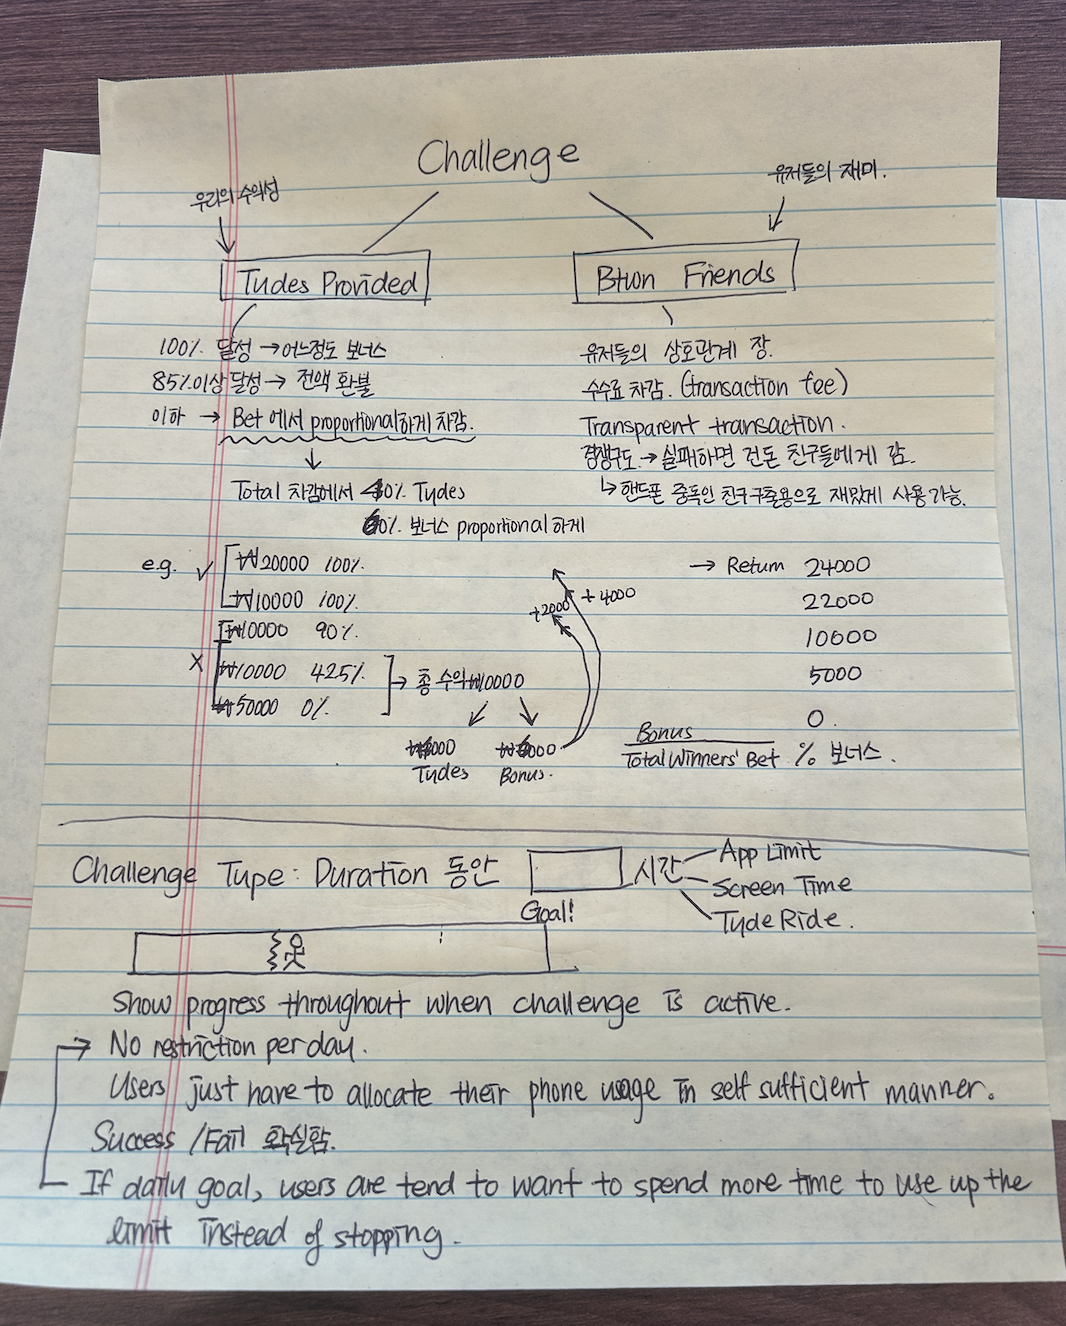 Challenge
우리의 수익성
유저들의 재미.
Tydes Provided
Btwn Friends
100% 달성 → 어느정도 보너스
85%이상 달성 → 전액 환불
이하 → Bet 에서 proportional하게 차감.
Total 차감에서 40% Tydes
60% 보너스 proportional 하게
유저들의 상호관계 장.
수수료 차감. (transaction fee)
Transparent transaction.
경쟁구도 → 실패하면 건돈 친구들에게 감.
↳ 핸드폰 중독인 친구 구출용으로 재밌게 사용 가능.
e.g. ✓ ₩20000 100%
₩10000 100%
₩10000 90%
X ₩10000 42.5%
₩50000 0%
→ 총 수익 ₩10000
Tydes
Bonus.
+2000
+4000
→ Return 24000
22000
10000
5000
0.
Bonus
Total Winners' Bet % 보너스.
Challenge Type: Duration 동안 시간
App Limit
Screen Time
Tyde Ride.
Goal!
Show progress throughout when challenge is active.
→ No restriction per day.
Users just have to allocate their phone usage in self sufficient manner.
Success / Fail 확실함.
If daily goal, users are tend to want to spend more time to use up the
limit instead of stopping.